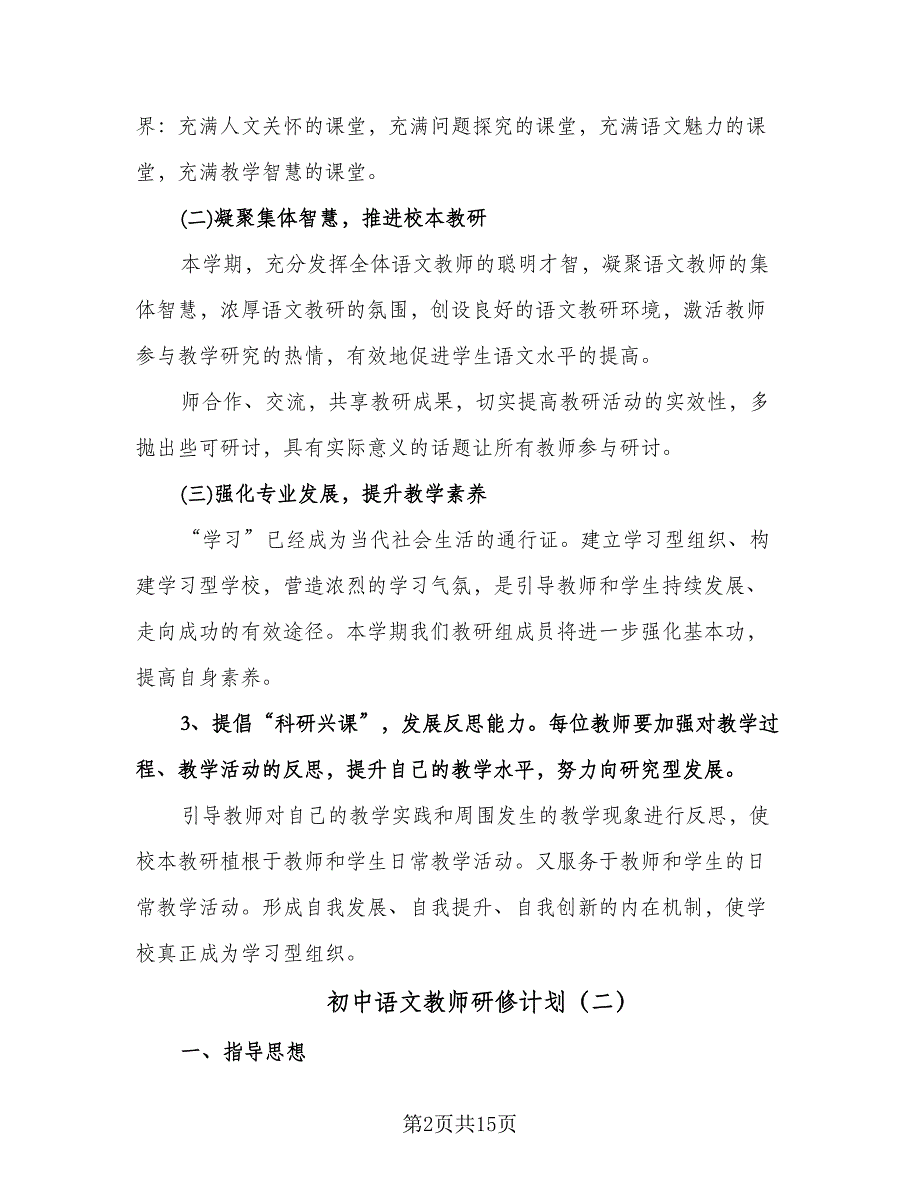 界：充满人文关怀的课堂，充满问题探究的课堂，充满语文魅力的课
堂，充满教学智慧的课堂。
(二)凝聚集体智慧，推进校本教研
本学期，充分发挥全体语文教师的聪明才智，凝聚语文教师的集
体智慧，浓厚语文教研的氛围，创设良好的语文教研环境，激活教师
参与教学研究的热情，有效地促进学生语文水平的提高。
师合作、交流，共享教研成果，切实提高教研活动的实效性，多
抛出些可研讨，具有实际意义的话题让所有教师参与研讨。
(三)强化专业发展，提升教学素养
“学习”已经成为当代社会生活的通行证。建立学习型组织、构
建学习型学校，营造浓烈的学习气氛，是引导教师和学生持续发展、
走向成功的有效途径。本学期我们教研组成员将进一步强化基本功，
提高自身素养。
3、提倡“科研兴课”，发展反思能力。每位教师要加强对教学过
程、教学活动的反思，提升自己的教学水平，努力向研究型发展。
引导教师对自己的教学实践和周围发生的教学现象进行反思，使
校本教研植根于教师和学生日常教学活动。又服务于教师和学生的日
常教学活动。形成自我发展、自我提升、自我创新的内在机制，使学
校真正成为学习型组织。
初中语文教师研修计划（二）
一、指导思想
第2页共15页